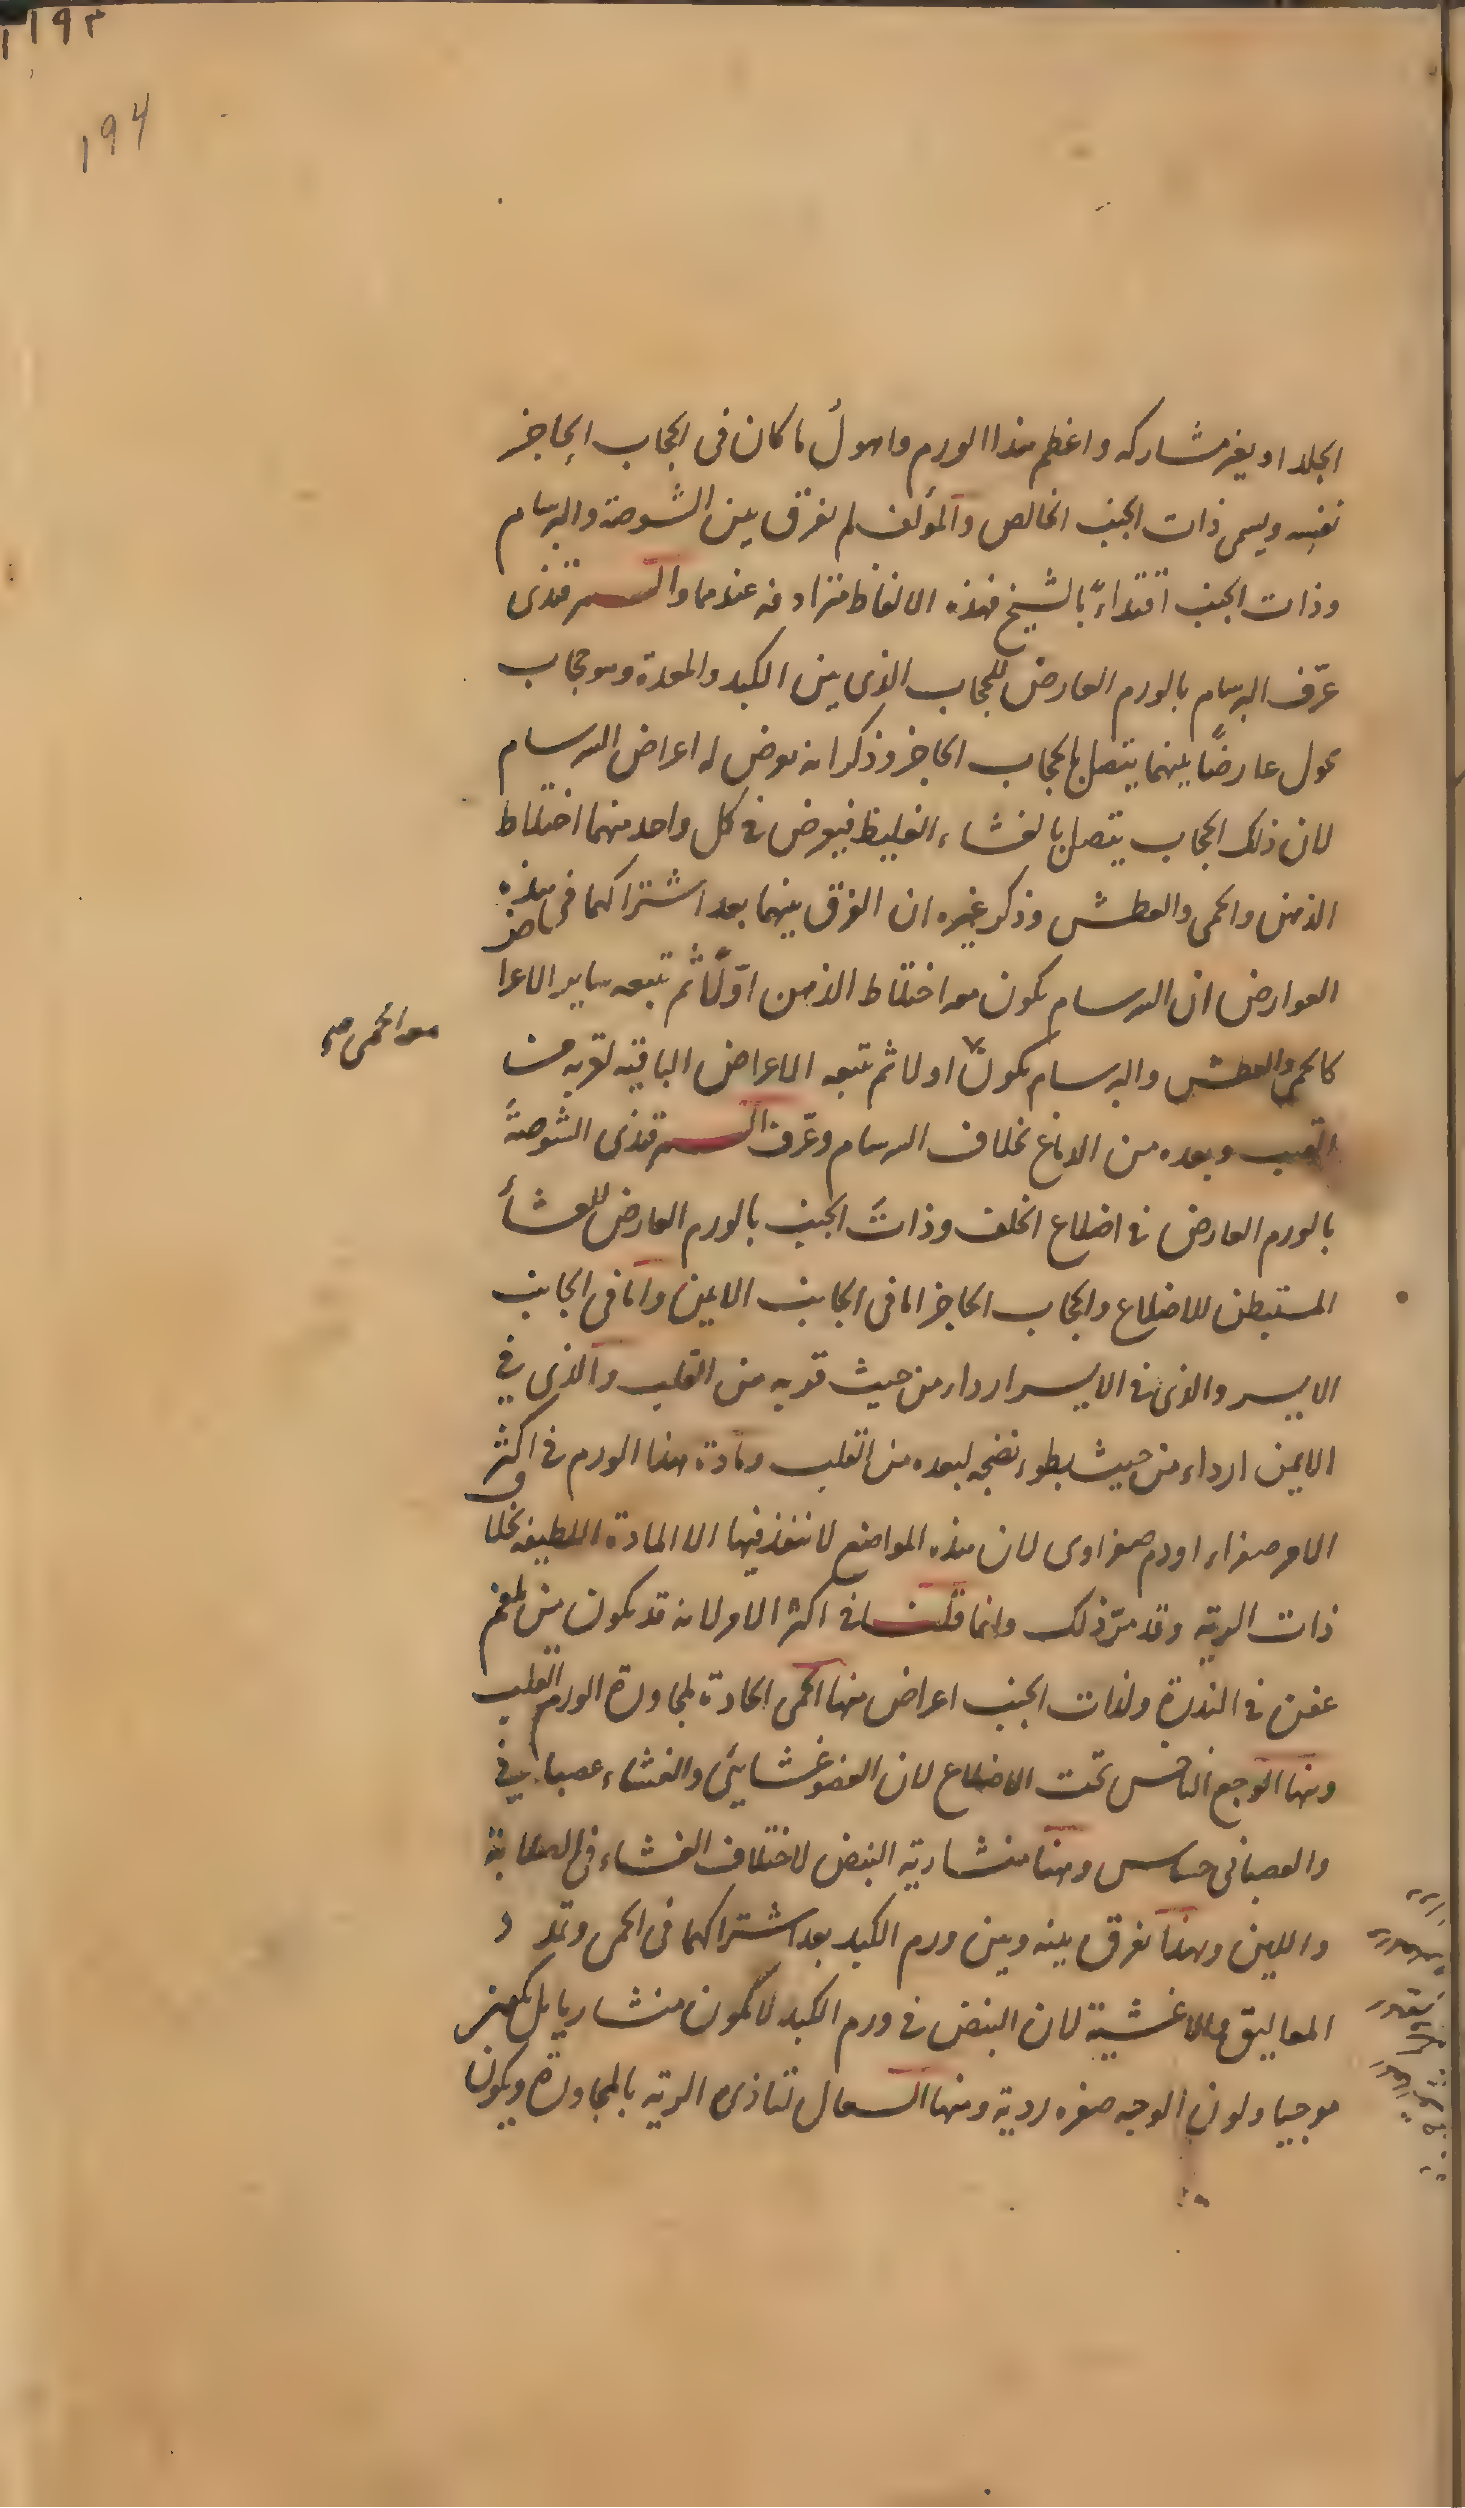 ١٩٣
١٩٤
الجلد او بغير مشاركه واعظم هذا الورم واهولُ ما كان فى الحجاب الحاجز
نفسه ويسمى ذات الجنب الخالص والمؤلف لم يفرق بين الشوصة والبرسام
وذات الجنب اقتداءً بالشيخ فهذه الالفاظ مترادفه عندهما والسمرقندى
عرّف البرسام بالورم العارض للحجاب الذى بين الكبد والمعدة وهو حجاب
يحول عارضًا بينهما يتصل بالحجاب الحاجز وذكر انه يعرض له اعراض السرسام
لان ذلك الحجاب يتصل بالغشاء الغليظ فيعرض فى كل واحد منهما اختلاط
الذهن والحمى والعطش وذكر غيره ان الفرق بينهما بعد اشتراكهما فى هذه
العوارض ان السرسام يكون معه اختلاط الذهن اوّلًا ثم تتبعه ساير الاعراض
كالحمى والعطش والبرسام يكون اولا ثم تتبعه الاعراض الباقيه لقربه من
معه الحمى صح
القلب وبعده من الدماغ بخلاف السرسام وعرّف السمرقندى الشوصة
بالورم العارض فى اضلاع الخلف وذات الجنب بالورم العارض للغشاء
المستبطن للاضلاع والحجاب الحاجز اما فى الجانب الايمن واما فى الجانب
الايسر والذى فى الايسر اردا من حيث قربه من القلب والذى في
الايمن ارداء من حيث بطوء نضجه لبعده من القلب ومادة هذا الورم فى اكثر
الامر صفراء او دم صفراوى لان هذه المواضع لا تنفذ فيها الا المادة اللطيفه بخلاف
ذات الرية وقد مرّ ذلك وانما قلنا فى اكثر الامر لانه قد يكون من بلغم
عفن فى الندرة ولذات الجنب اعراض منها الحمى الحادة لمجاورة الورم القلب
ومنها الوجع الناخس تحت الاضلاع لان العضو غشايئ والغشاء عصبانى
والعصبانى حساس ومنها منشارية النبض لاختلاف الغشاء فى الصلابة
واللين وبهذا يفرق بينه وبين ورم الكبد بعد اشتراكهما فى الحمى وتمدد
المعاليق والاغشية لان النبض فى ورم الكبد لا يكون منشاريا بل يكون
موجيا ولون الوجه صفره ردية ومنها السعال لتاذى الرية بالمجاورة ويكون